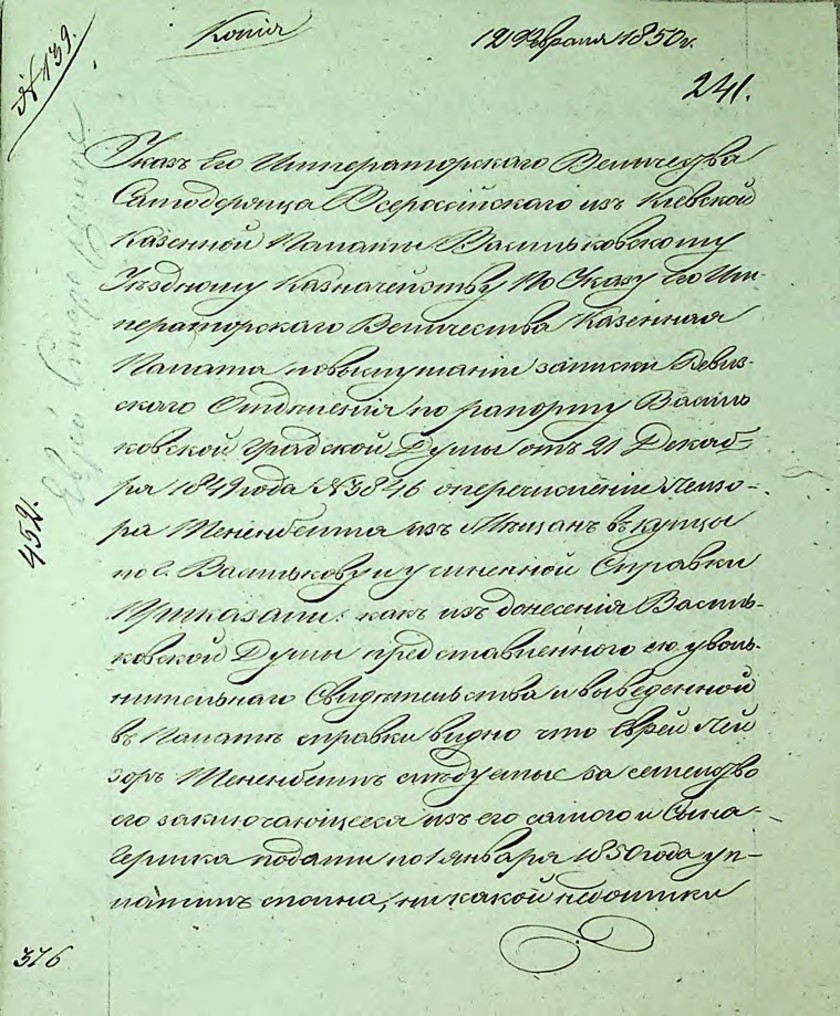 № 139.
Копія
12 Февраля 1850 г.
241.
Указъ Его Императорскаго Величества
Самодержца Всероссійскаго изъ Кіевской
Казенной Палаты Васильковскому
Уѣздному Казначейству По Указу Его Им-
ператорскаго Величества Казенная
Палата по выслушаніи записки Ревиз-
скаго Отдѣленія по рапорту Василь
ковской Градской Думы отъ 21 Декаб-
ря 1849 года № 3846 о перечисленіи Лейзо-
ра Тененбейма изъ Мѣщанъ въ купцы
по г. Василькову и учиненной Справки
Приказали: какъ изъ донесенія Василь-
ковской Думы представленнаго ею уволь-
нительнаго Свидѣтельства и выведенной
въ Палатѣ справки видно что Еврей Лей
зоръ Тененбеймъ слѣдуемые за семейство
его заключающееся изъ его самого и Сына
Гершка подати по 1 Января 1850 года уп-
латилъ сполна, никакой недоимки
452.
376
Еврей